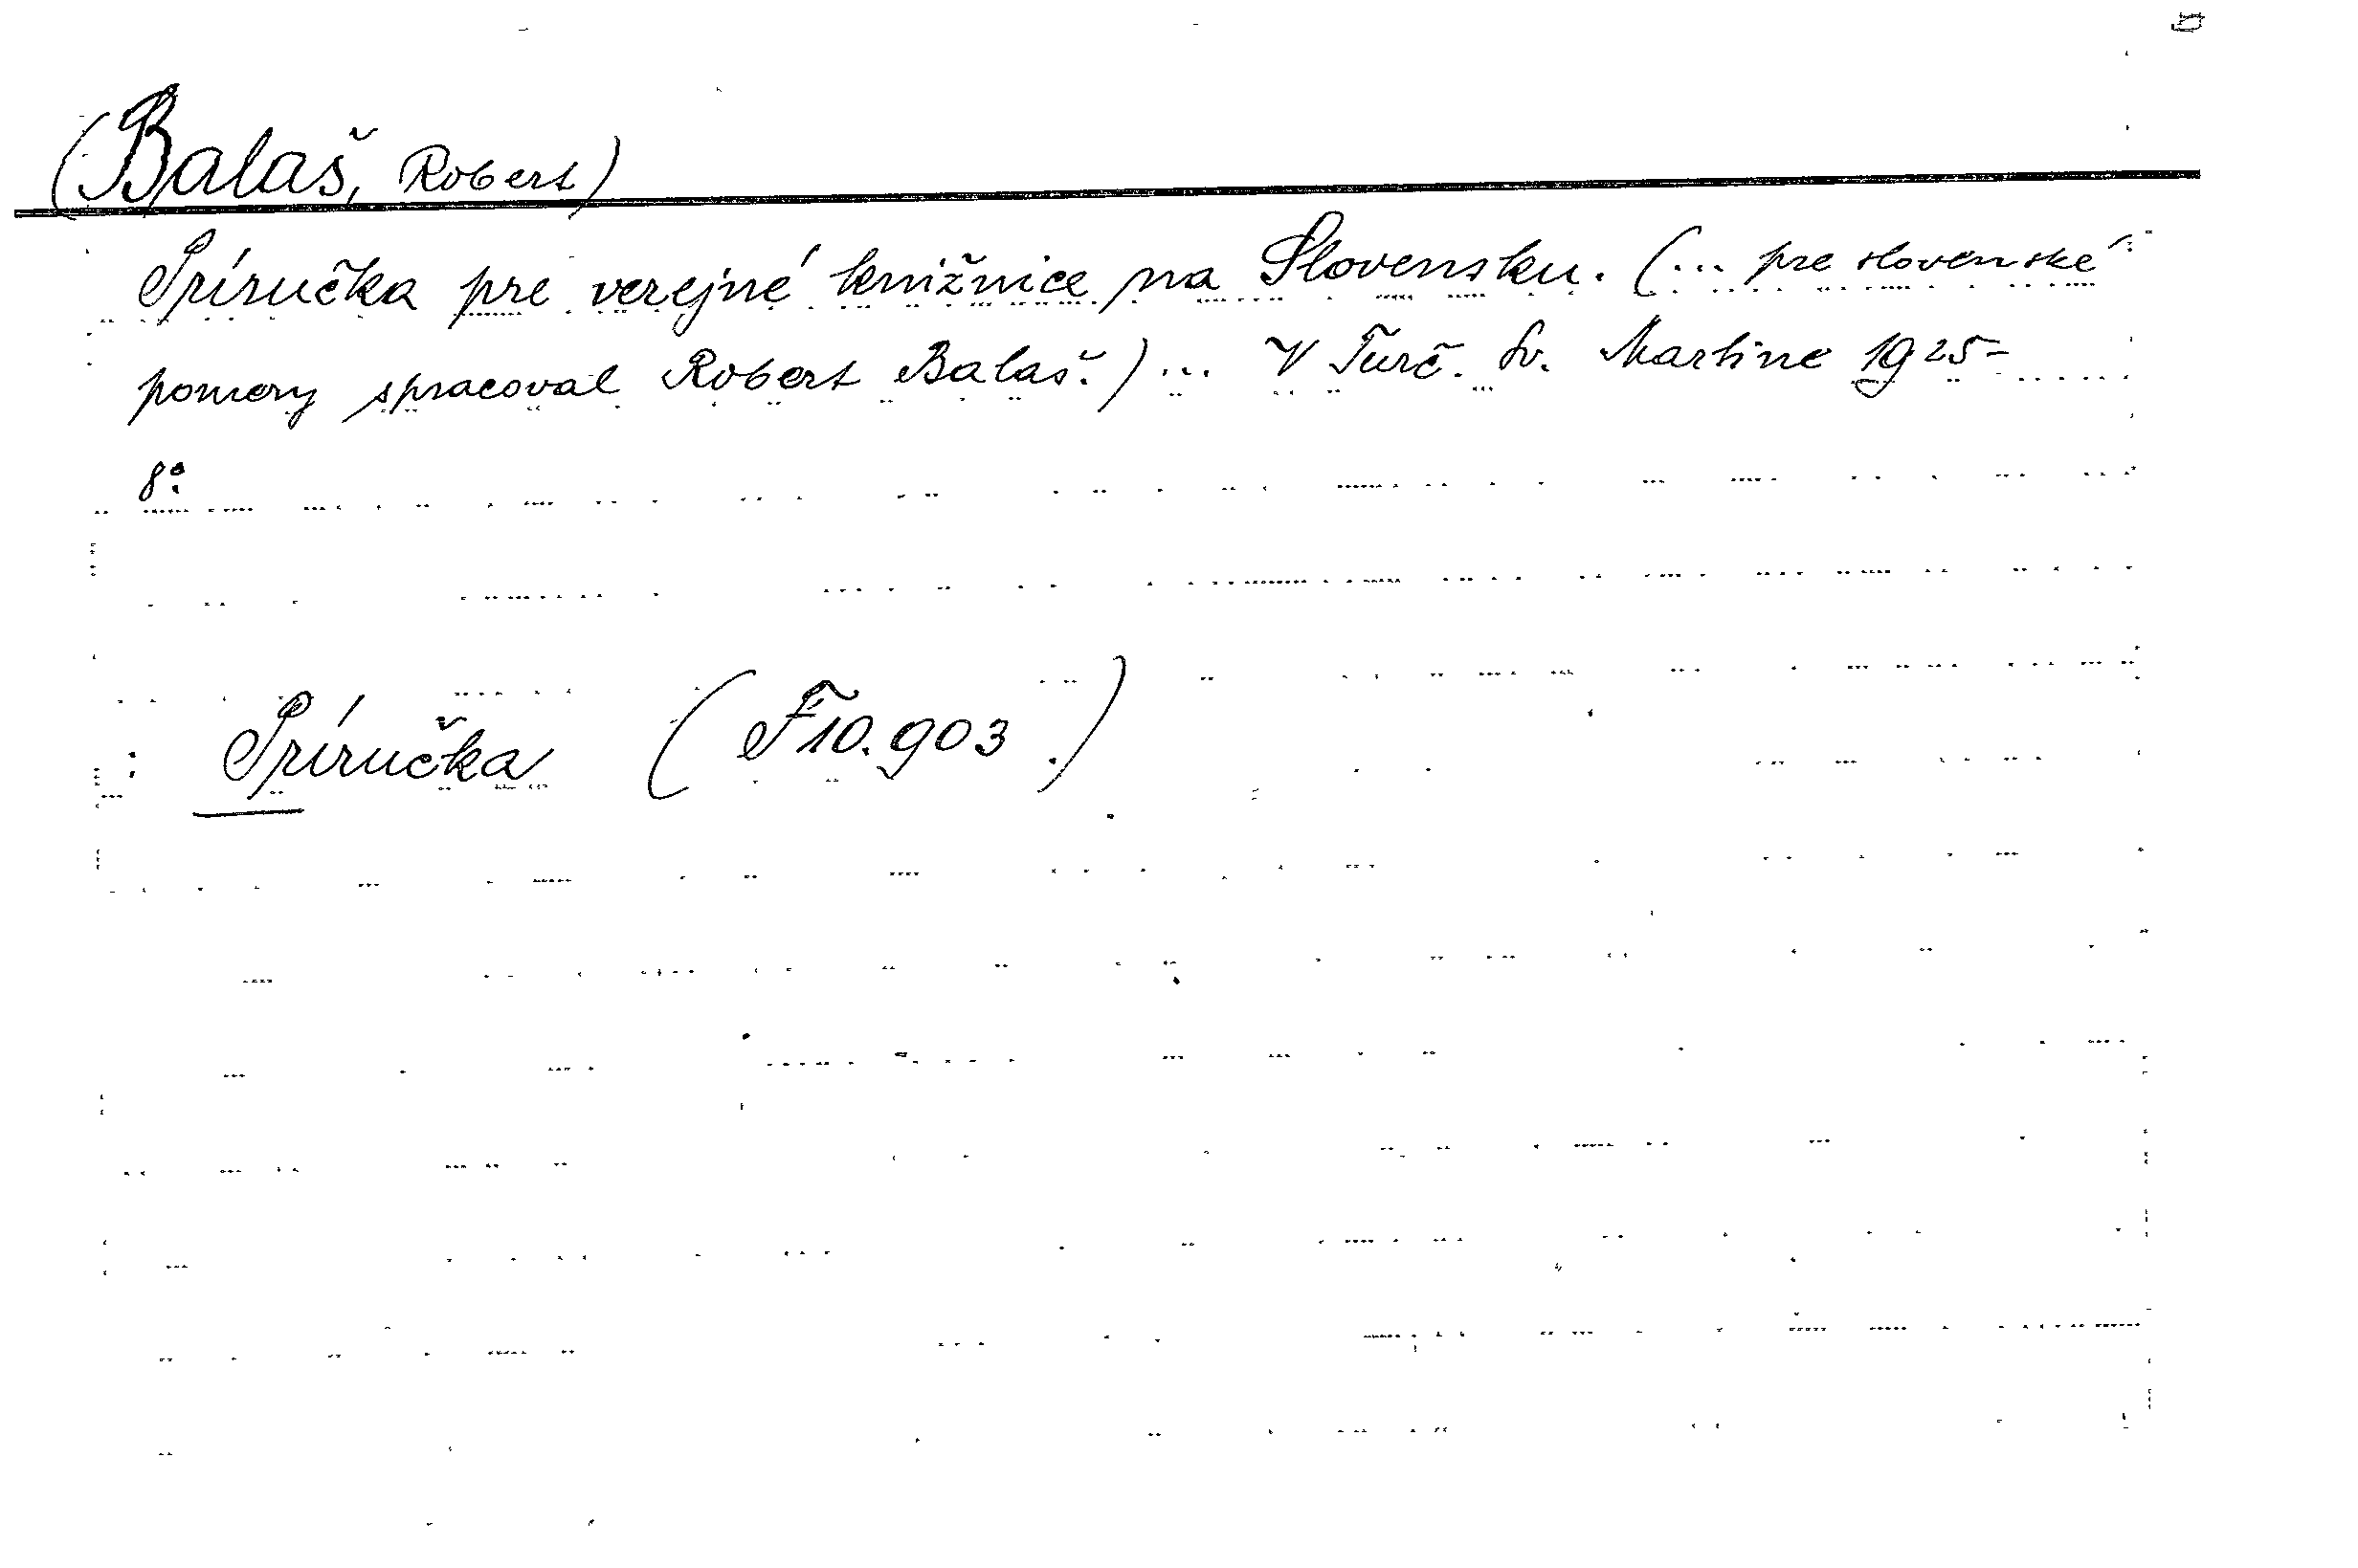 (Balaš, Robert)
Príručka pre verejné knižnice na Slovensku. (... pre slovenské
pomery spracoval Robert Balaš.) ... V Turč. Sv. Martine 1925-
8°.
: Príručka (F10.903.)